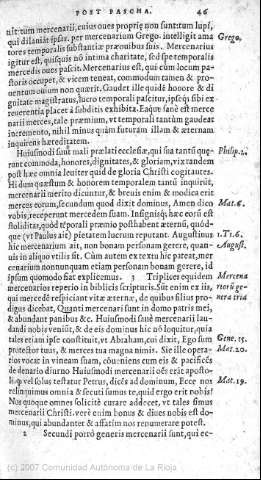 POST PASCHA. 46
nit: tum mercenarii, cuius oues propriæ non sunt: tum lupi,
qui dilaniat ipsas. per mercenarium Grego. intelligit ama
tores temporalis substantiæ præ ouibus suis. Mercenarius
igitur est, quisquis nō intima charitate, sed spe temporalis
mercedis oues pascit. Mercenarius est, qui cum locum pa-
storis occupet, & vicem teneat, commodum tamen & pro-
uentum ouium non quærit. Gaudet ille quidē honore & di
gnitate magistratus, lucro temporali pascitur, ipsiq; sibi ex
reuerentia placet à subditis exhibita. Eaq; sanè est merce
narii merces, tale præmium, vt temporali tantùm gaudeat
incremento, nihil minus quàm futuram illam & æternam
inquirens hæreditatem.
Huiusmodi sunt mali prælati ecclesiæ, qui sua tantū quæ-
runt commoda, honores, dignitates, & gloriam, vix tandem
post hæc omnia leuiter quid de gloria Christi cogitantes.
Hi dum quæstum & honorem temporalem tantū inquirūt,
mercenarii meritò dicuntur, & breuis enim & modica erit
merces eorum, secundum quod dixit dominus, Amen dico
vobis, receperunt mercedem suam. Insignisq; hæc eorū est
stoliditas, quòd tēporali præmio posthabent æternū, quòd-
que (vt Paulus ait) pietatem lucrum reputant. Augustinus
hic mercenarium ait, non bonam personam gerere, quam-
uis in aliquo vtilis sit. Cùm autem ex textu hic pateat, mer
cenarium nonnunquam etiam personam bonam gerere, id
ipsum quomodo fiat explicemus. ¶ Triplices equidem
mercenarios reperio in biblicis scripturis. Sūt enim ex iis,
qui mercedē respiciant vitæ æternæ, de quibus filius pro-
digus dicebat, Quanti mercenarii sunt in domo patris mei,
& abundant panibus &c. Huiusmodi sunt mercenarii lau-
dandi nobis veniūt, & de eis dominus hic nō loquitur, quia
tales etiam ipse constituit, vt Abraham, cui dixit, Ego sum
protector tuus, & merces tua magna nimis. Sic ille opera-
rios vocat in vineam suam, cōuentione cum eis & pacificēs
de denario diurno Huiusmodi mercenarii oēs erāt aposto-
li, quod vel solus testatur Petrus, dicēs ad dominum, Ecce nos
relinquimus omnia & secuti sumus te, quid ergo erit nobis?
Nos quoque omnes solicitè curare addecet, vt tales simus
mercenarii Christi. verè enim bonus & diues nobis est do-
minus, qui abundanter & affatim nos renumerare potest.
2 Secundi porrò generis mercenarii sunt, qui ec-
Grego.
Philip. 2.
Mat. 6.
1. Ti. 6.
August.
Mercena
riorū ge-
nera tria
Gene. 15.
Mat. 20.
Mat. 19.
(c) 2007 Comunidad Autónoma de La Rioja